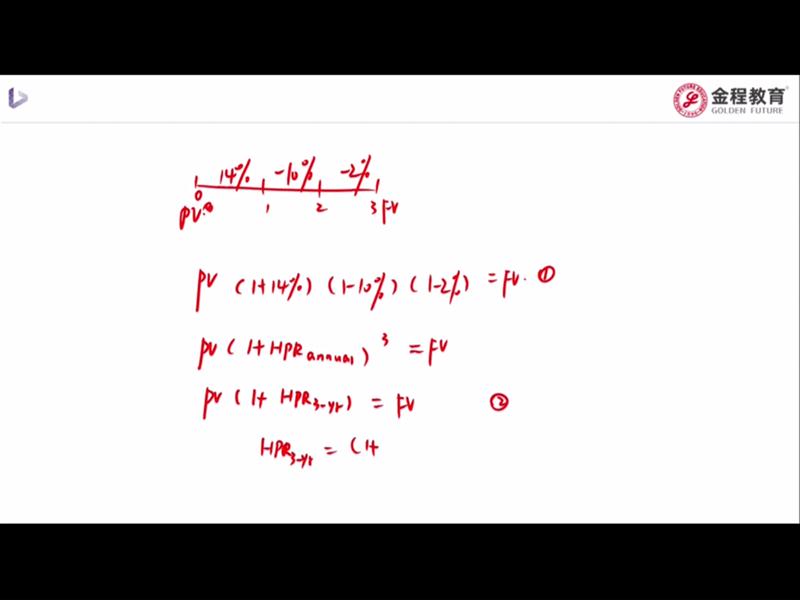 金程教育
GOLDEN FUTURE
14% -10% -2%
0 1 2 3 FV
PV
PV (1+14%) (1-10%) (1-2%) = FV. ①
PV (1+HPR annual)³ = FV
PV (1+ HPR 3-yr) = FV ②
HPR 3-yr = (1+